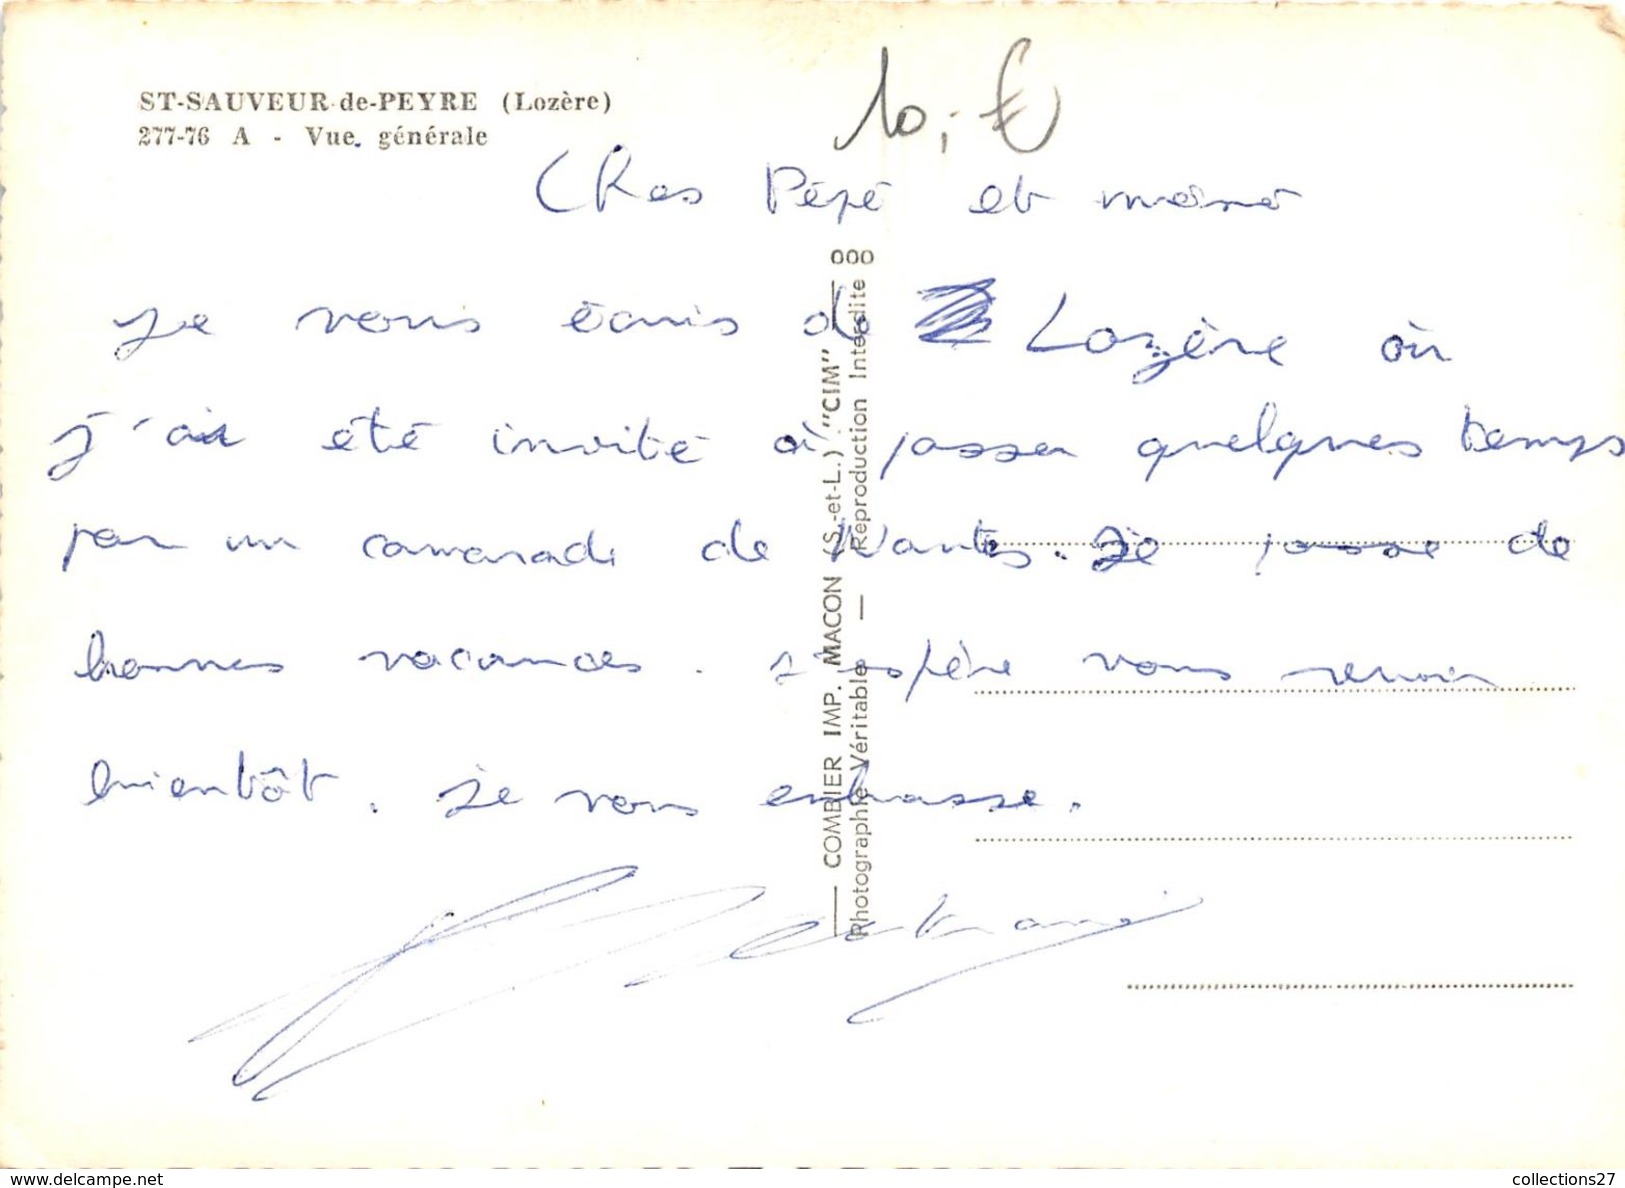 ST-SAUVEUR-de-PEYRE (Lozère)
277-76 A - Vue générale
10,-€
Chers Pépé et mémé
Je vous écris de Lozère où
j'ai été invité à passer quelques temps
par un camarade de Nantes. Je passe de
bonnes vacances. J'espère vous revoir
bientôt. Je vous embrasse.
COMBIER IMP. MACON (S.-et-L.) "CIM"
Photographie Véritable — Reproduction Interdite
000
delcampe.net
collections27